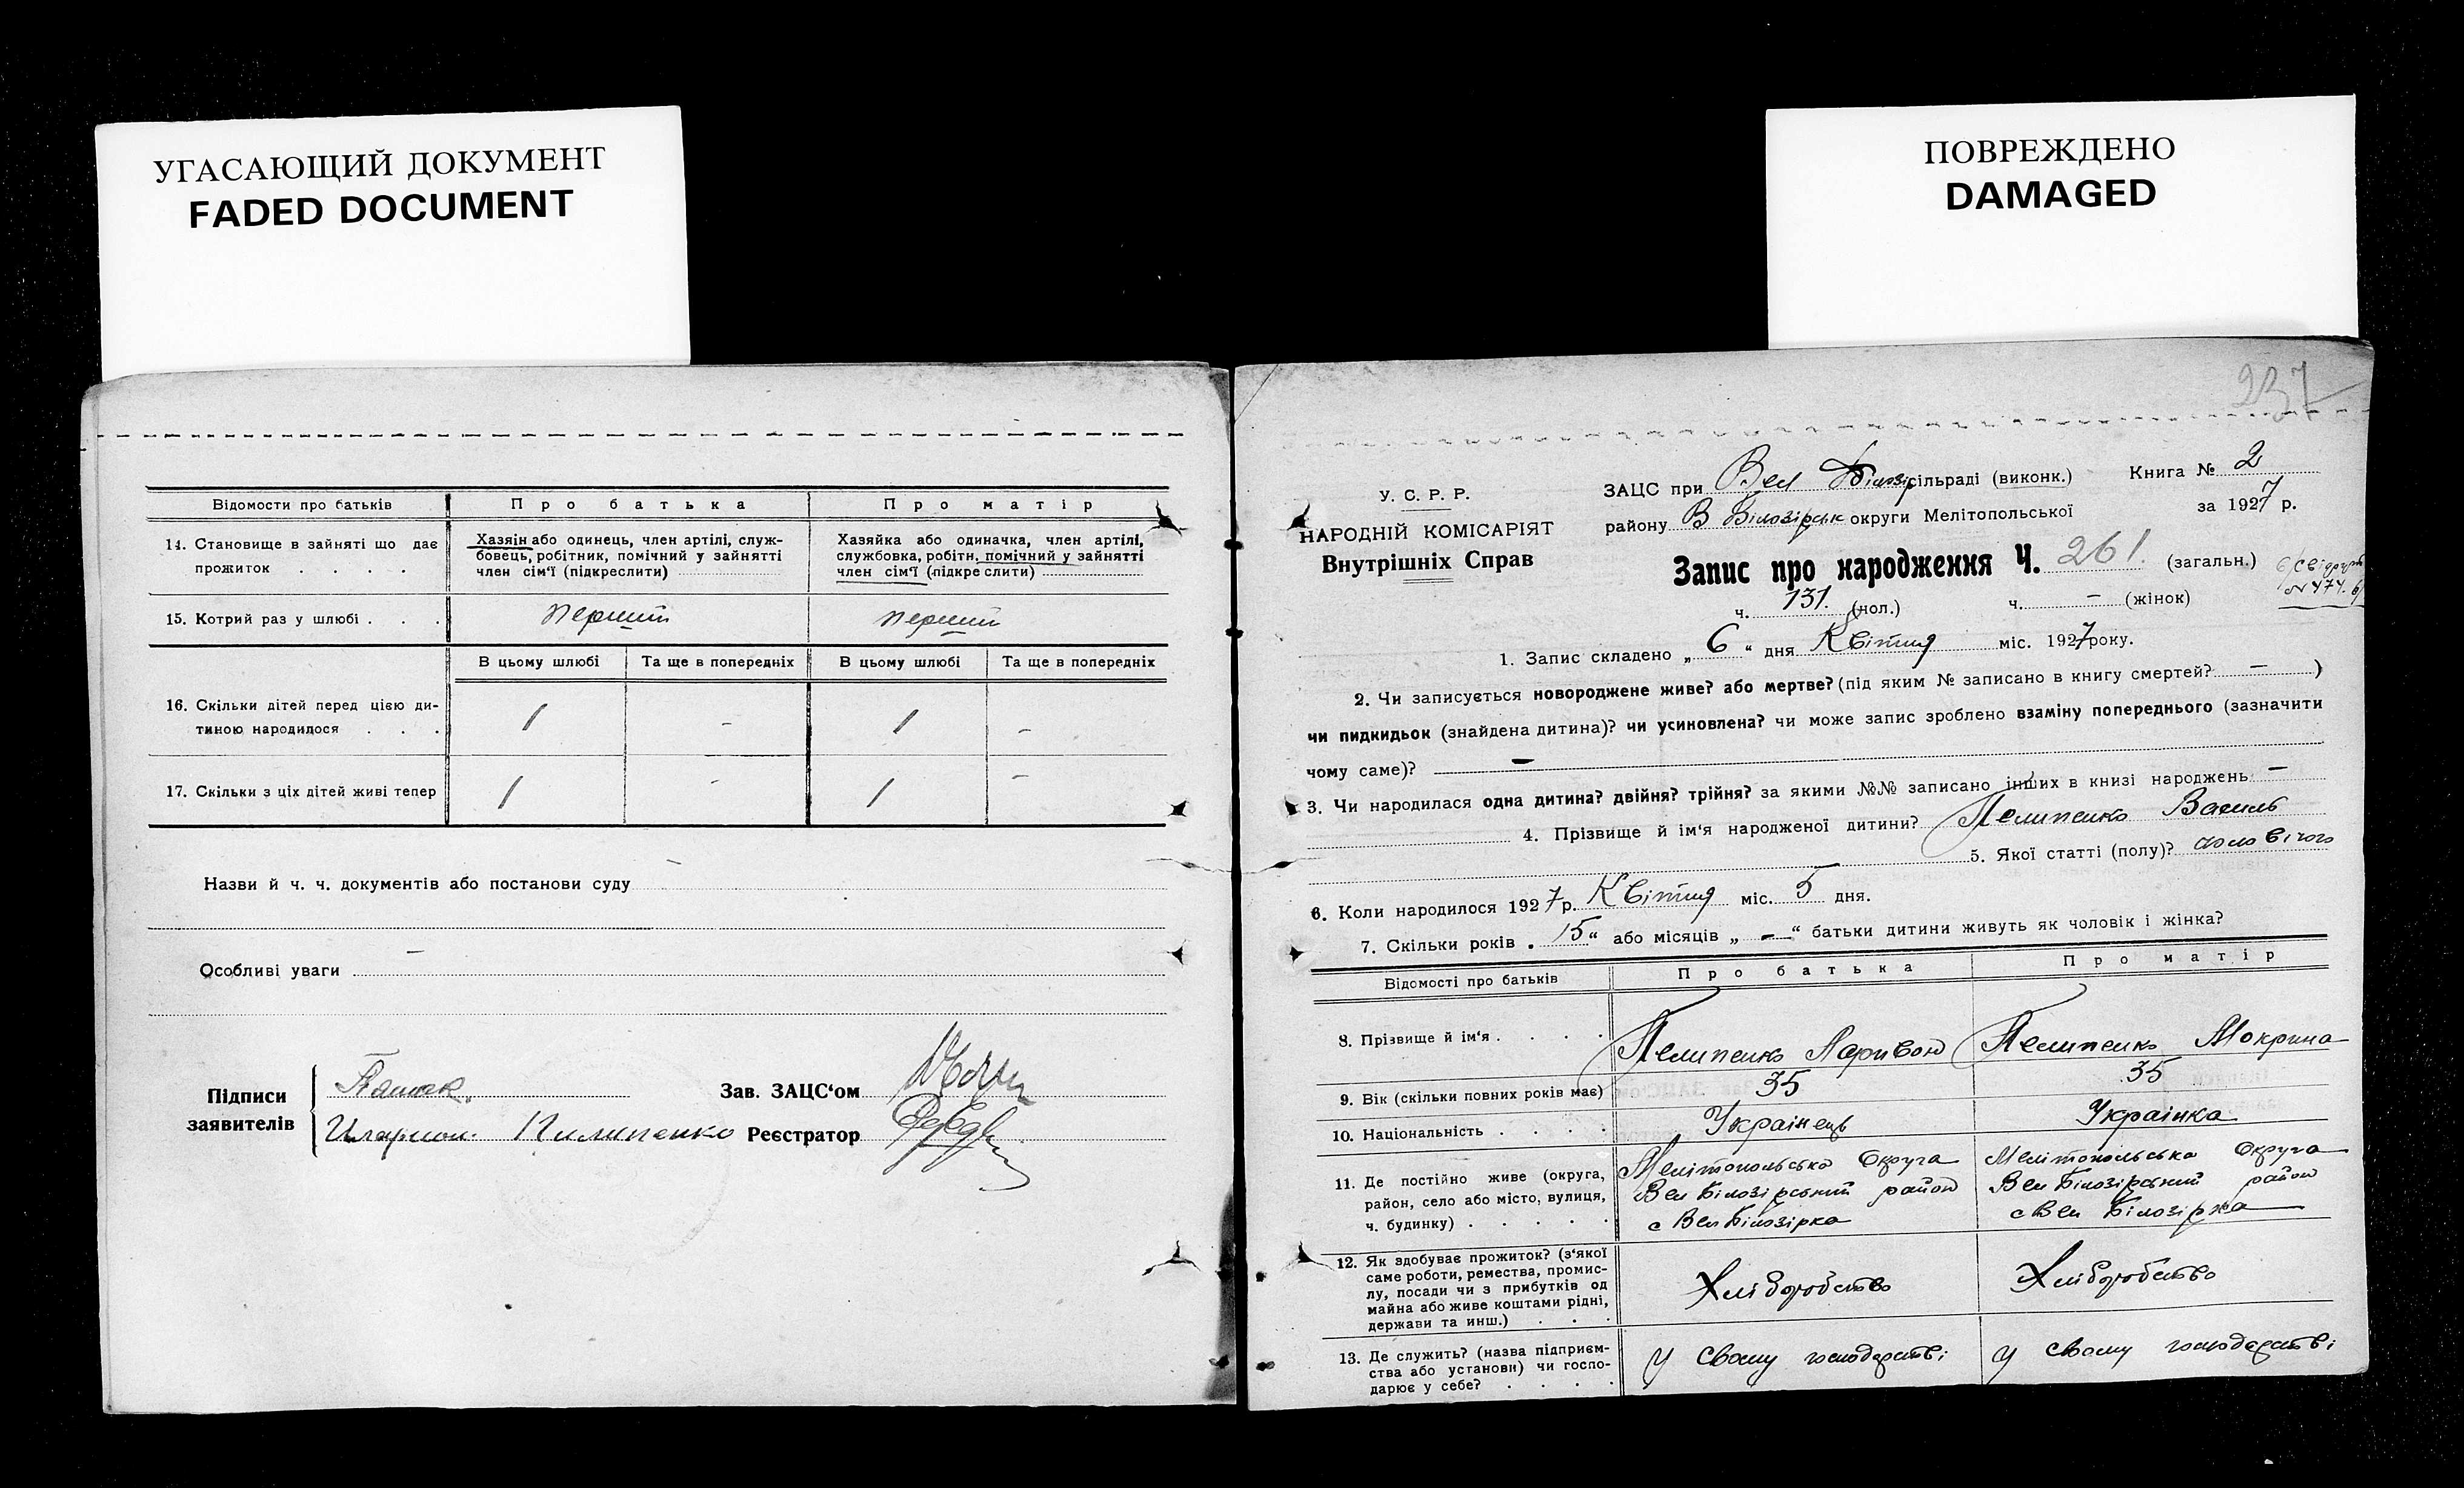 УГАСАЮЩИЙ ДОКУМЕНТ
FADED DOCUMENT
ПОВРЕЖДЕНО
DAMAGED
Відомости про батьків
Про батька
Про матір
14. Становище в зайняті що дає прожиток . . . .
Хазяін або одинець, член артілі, служ-
бовець, робітник, помічний у зайнятті
член сім'ї (підкреслити)
Хазяйка або одиначка, член артілі,
службовка, робітн. помічний у зайнятті
член сім'ї (підкреслити)
15. Котрий раз у шлюбі . . .
перший
перший
В цьому шлюбі
Та ще в попередніх
В цьому шлюбі
Та ще в попередніх
16. Скільки дітей перед цією ди-
тиною народилося . . .
1 - 1 -
17. Скільки з ціх дітей живі тепер
1 - 1 -
Назви й ч. ч. документів або постанови суду
Особливі уваги —
Підписи
заявителів
Иларион Пилипенко
Зав. ЗАЦС'ом
Реєстратор
237
У. С. Р. Р.
НАРОДНІЙ КОМІСАРІЯТ
Внутрішніх Справ
ЗАЦС при Вел Білозір сільраді (виконк.)
Книга № 2
району В Білозірськ округи Мелітопольської
за 1927 р.
Запис про народження Ч. 261. (загальн.)
№ 474.
ч. 131. (чол.) ч. – (жінок)
1. Запис складено „ 6 “ дня Квітня міс. 1927 року.
2. Чи записується новороджене живе? або мертве? (під яким № записано в книгу смертей? — )
чи пидкидьок (знайдена дитина)? чи усиновлена? чи може запис зроблено взаміну попереднього (зазначити
чому саме)? —
3. Чи народилася одна дитина? двійня? трійня? за якими №№ записано інших в книзі народжень —
4. Прізвище й ім'я народженої дитини? Пелипенко Василь
5. Якої статті (полу)? чоловічого
6. Коли народилося 1927 р. Квітня міс. 5 дня.
7. Скільки років „ 15 “ або місяців „ — “ батьки дитини живуть як чоловік і жінка?
Відомості про батьків
Про батька
Про матір
8. Прізвище й ім'я . . . .
Пелипенко Ларивон
Пелипенко Мокрина
9. Вік (скільки повних років має)
35
35
10. Національність . . . .
Українець
Українка
11. Де постійно живе (округа,
район, село або місто, вулиця,
ч. будинку) . . . . .
Мелітопольська Округа
Вел Білозірський район
с Вел Білозірка
Мелітопольська Округа
Вел Білозірський район
с Вел Білозірка
12. Як здобуває прожиток? (з'якої
саме роботи, ремества, промис-
лу, посади чи з прибутків од
майна або живе коштами рідні,
держави та инш.) . . .
Хліборобство
Хліборобство
13. Де служить? (назва підприєм-
ства або установи) чи госпо-
дарює у себе? . . . .
У своому господарстві
У своому господарстві